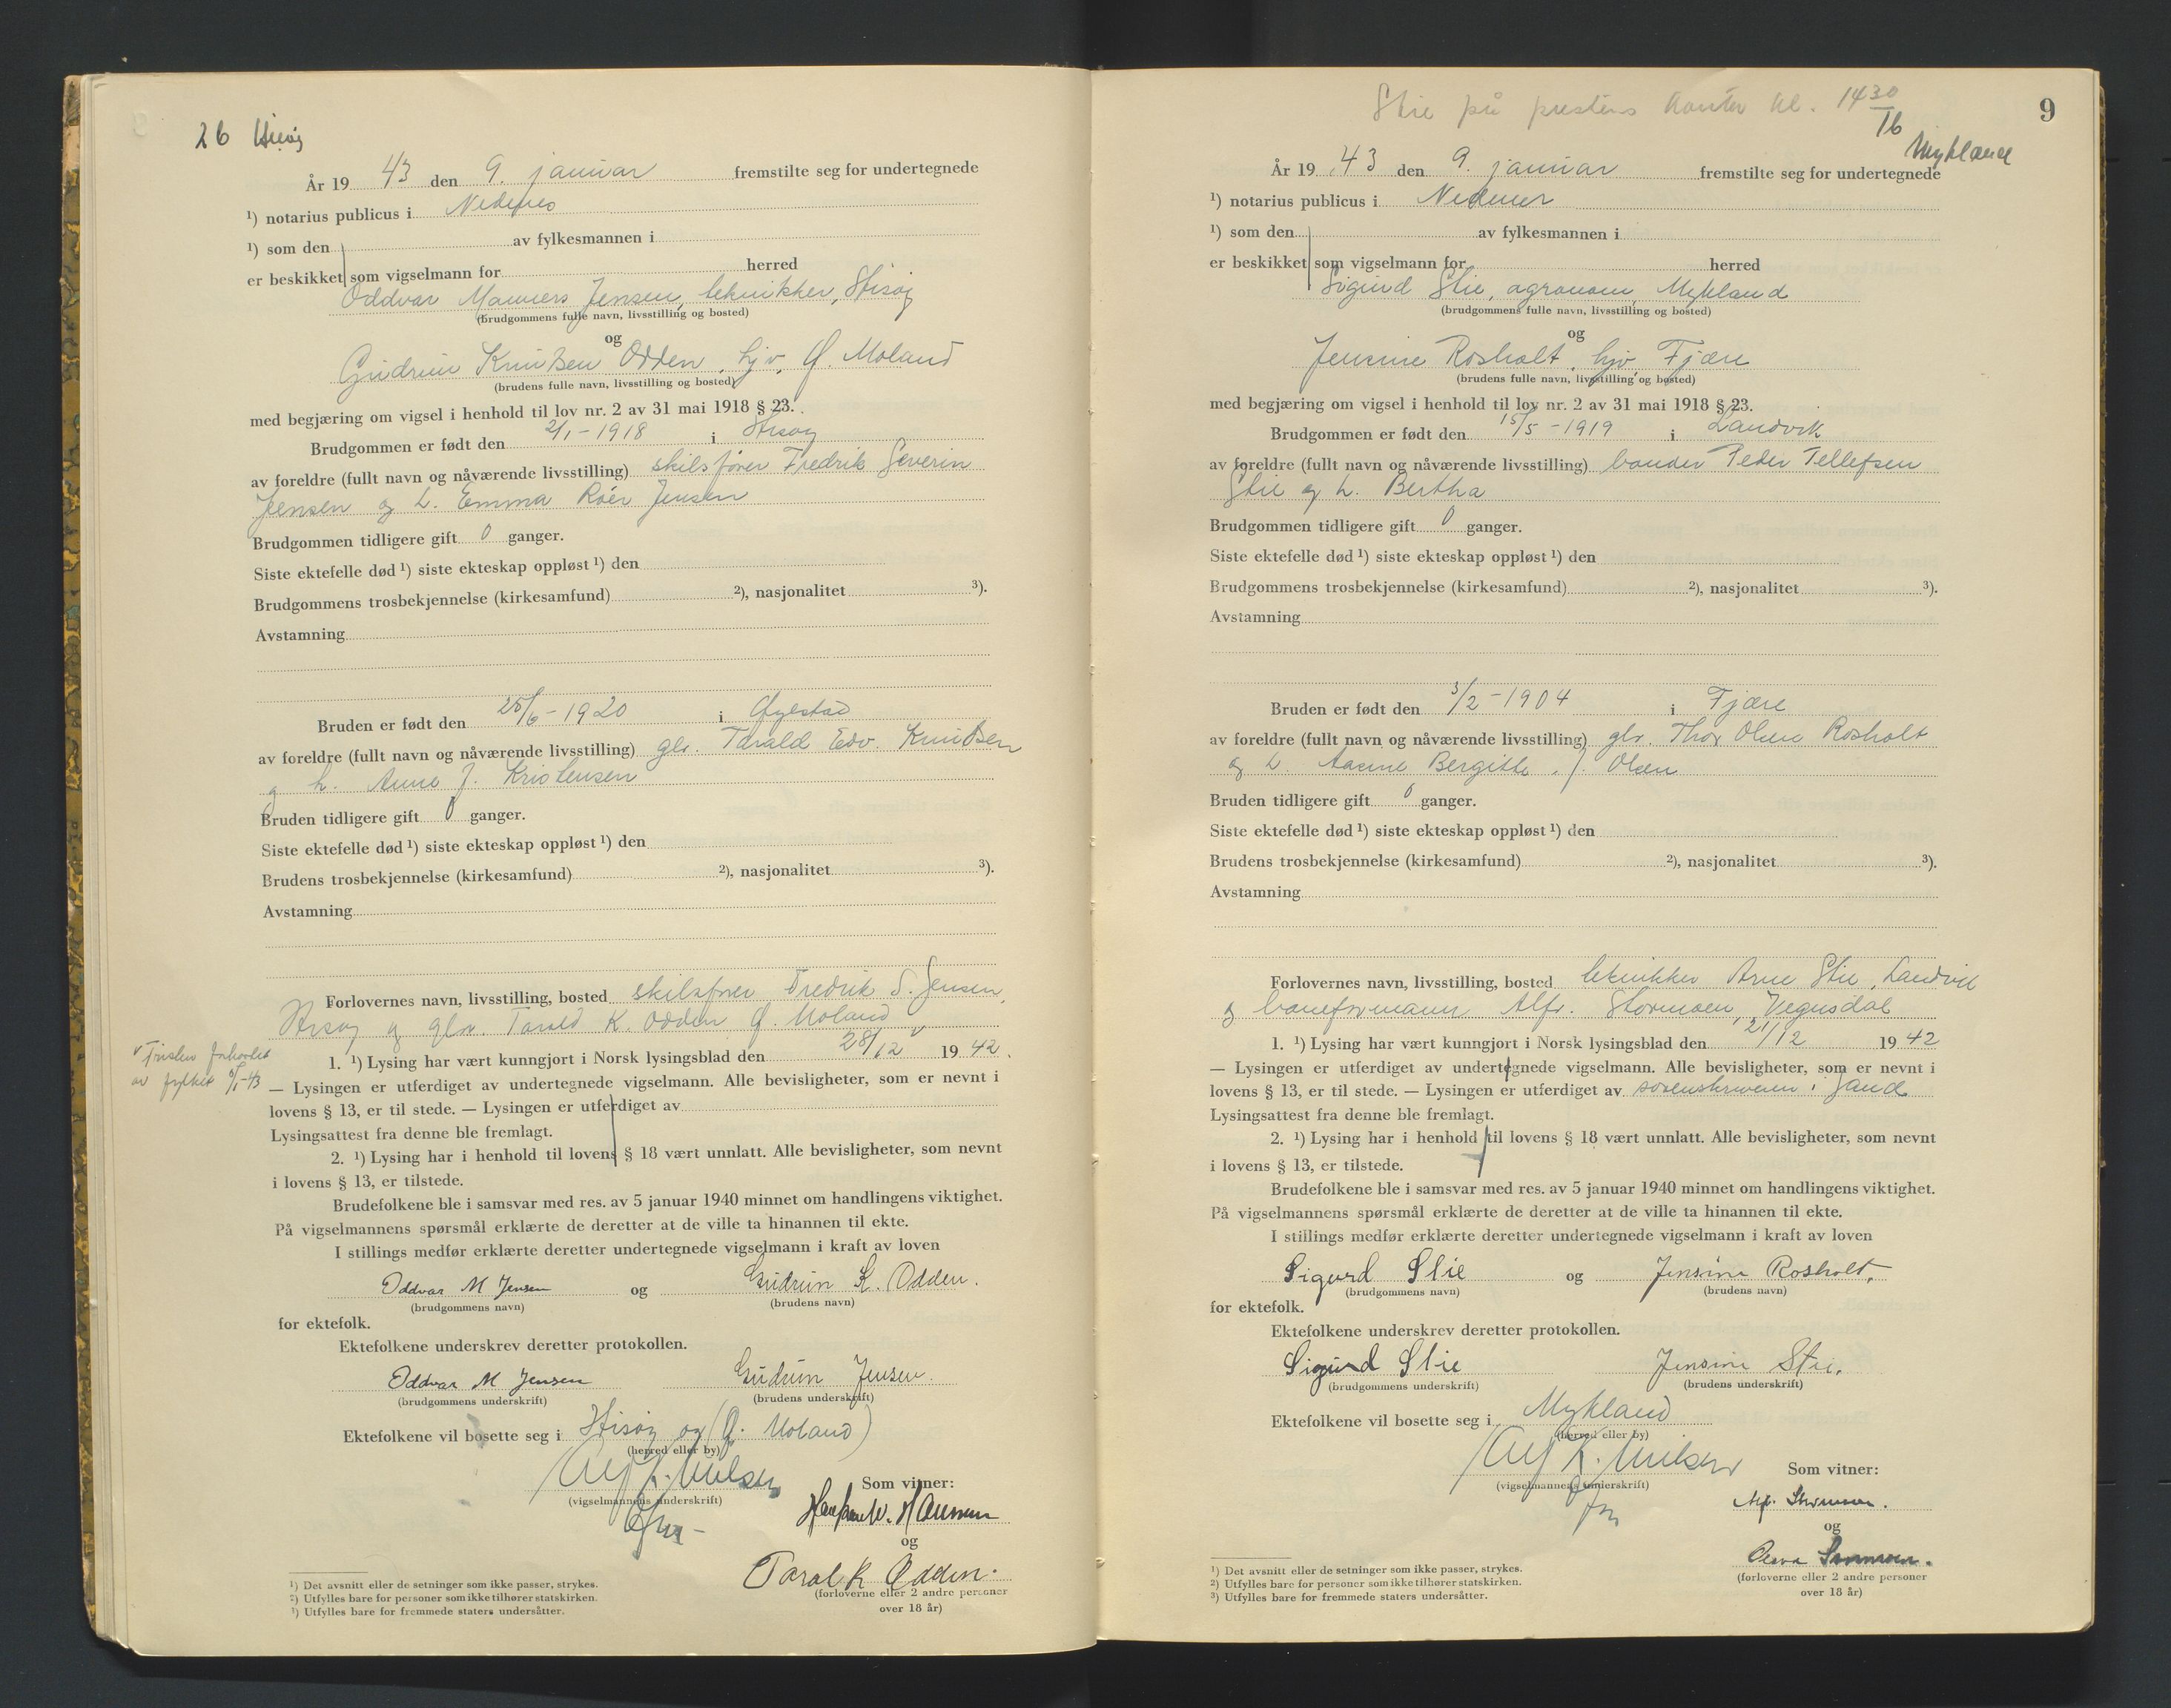 26 Hisøy
År 19 43 den 9. januar fremstilte seg for undertegnede
¹) notarius publicus i Nedenes
¹) som den av fylkesmannen i
er beskikket som vigselmann for herred
Oddvar Jensen, tekniker, Hisøy
(brudgommens fulle navn, livsstilling og bosted)
og
Gudrun Knudsen Odden, hjv, Ø. Moland
(brudens fulle navn, livsstilling og bosted)
med begjæring om vigsel i henhold til lov nr. 2 av 31 mai 1918 § 23.
Brudgommen er født den 2/1 - 1918 i Hisøy
av foreldre (fullt navn og nåværende livsstilling) skibsfører Fredrik Severin
Jensen og h. Emma Roér Jensen
Brudgommen tidligere gift 0 ganger.
Siste ektefelle død ¹) siste ekteskap oppløst ¹) den
Brudgommens trosbekjennelse (kirkesamfund) ²), nasjonalitet ³).
Avstamning
Bruden er født den 25/6 - 1920 i Øyestad
av foreldre (fullt navn og nåværende livsstilling) gbr. Tarald Edv. Knudsen
og h. Anne J. Kristensen
Bruden tidligere gift 0 ganger.
Siste ektefelle død ¹) siste ekteskap oppløst ¹) den
Brudens trosbekjennelse (kirkesamfund) ²), nasjonalitet ³).
Avstamning
Forlovernes navn, livsstilling, bosted skibsfører Fredrik S. Jensen,
Hisøy og gbr. Tarald K. Odden Ø. Moland
1. ¹) Lysing har vært kunngjort i Norsk lysingsblad den 28/12 v 19 42.
v Fristen forkortet
av fylket 8/1-43
— Lysingen er utferdiget av undertegnede vigselmann. Alle bevisligheter, som er nevnt i
lovens § 13, er til stede. — Lysingen er utferdiget av
Lysingsattest fra denne ble fremlagt.
2. ¹) Lysing har i henhold til lovens § 18 vært unnlatt. Alle bevisligheter, som nevnt
i lovens § 13, er tilstede.
Brudefolkene ble i samsvar med res. av 5 januar 1940 minnet om handlingens viktighet.
På vigselmannens spørsmål erklærte de deretter at de ville ta hinannen til ekte.
I stillings medfør erklærte deretter undertegnede vigselmann i kraft av loven
Oddvar M Jensen og Gudrun K. Odden.
(brudgommens navn) (brudens navn)
for ektefolk.
Ektefolkene underskrev deretter protokollen.
Oddvar M Jensen Gudrun Jensen.
(brudgommens underskrift) (brudens underskrift)
Ektefolkene vil bosette seg i Hisøy og (Ø. Moland)
(herred eller by)
Alf K. Nilsen Som vitner:
(vigselmannens underskrift)
Hansen
og
Taral K Odden.
(forloverne eller 2 andre personer
over 18 år)
¹) Det avsnitt eller de setninger som ikke passer, strykes.
²) Utfylles bare for personer som ikke tilhører statskirken.
³) Utfylles bare for fremmede staters undersåtter.
Stie på prestens kontor kl. 14 30
9
16 Mykland
År 19 43 den 9. januar fremstilte seg for undertegnede
¹) notarius publicus i Nedenes
¹) som den av fylkesmannen i
er beskikket som vigselmann for herred
Sigurd Stie, agronom, Mykland
(brudgommens fulle navn, livsstilling og bosted)
og
Jensine Rosholt, hjv, Fjære
(brudens fulle navn, livsstilling og bosted)
med begjæring om vigsel i henhold til lov nr. 2 av 31 mai 1918 § 23.
Brudgommen er født den 15/5 - 1919 i Landvik
av foreldre (fullt navn og nåværende livsstilling) bonder Peder Tellefsen
Stie og h. Bertha
Brudgommen tidligere gift 0 ganger.
Siste ektefelle død ¹) siste ekteskap oppløst ¹) den
Brudgommens trosbekjennelse (kirkesamfund) ²), nasjonalitet ³).
Avstamning
Bruden er født den 3/2 - 1904 i Fjære
av foreldre (fullt navn og nåværende livsstilling) gbr. Thor Olsen Rosholt
og h. Aasine Bergitte f. Olsen
Bruden tidligere gift 0 ganger.
Siste ektefelle død ¹) siste ekteskap oppløst ¹) den
Brudens trosbekjennelse (kirkesamfund) ²), nasjonalitet ³).
Avstamning
Forlovernes navn, livsstilling, bosted tekniker Arne Stie, Landvik
og baneformann Alfr. Stormoen, Vegusdal
1. ¹) Lysing har vært kunngjort i Norsk lysingsblad den 21/12 19 42
— Lysingen er utferdiget av undertegnede vigselmann. Alle bevisligheter, som er nevnt i
lovens § 13, er til stede. — Lysingen er utferdiget av sorenskriveren i Sand
Lysingsattest fra denne ble fremlagt.
2. ¹) Lysing har i henhold til lovens § 18 vært unnlatt. Alle bevisligheter, som nevnt
i lovens § 13, er tilstede.
Brudefolkene ble i samsvar med res. av 5 januar 1940 minnet om handlingens viktighet.
På vigselmannens spørsmål erklærte de deretter at de ville ta hinannen til ekte.
I stillings medfør erklærte deretter undertegnede vigselmann i kraft av loven
Sigurd Stie og Jensine Rosholt.
(brudgommens navn) (brudens navn)
for ektefolk.
Ektefolkene underskrev deretter protokollen.
Sigurd Stie Jensine Stie.
(brudgommens underskrift) (brudens underskrift)
Ektefolkene vil bosette seg i Mykland
(herred eller by)
Alf K. Nilsen Som vitner:
(vigselmannens underskrift) Alfr. Stormoen.
og
Stormoen.
(forloverne eller 2 andre personer
over 18 år)
¹) Det avsnitt eller de setninger som ikke passer, strykes.
²) Utfylles bare for personer som ikke tilhører statskirken.
³) Utfylles bare for fremmede staters undersåtter.